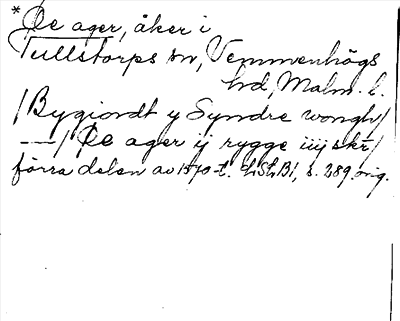 *De ager, åker i
Tullstorps sn, Vemmenhögs
hd, Malm. l.
/Bygiordt y Syndre wongh/
---/ De ager ij rygge iiij skr/
förra delen av 1570-t. LSt. B1, s. 289. orig.